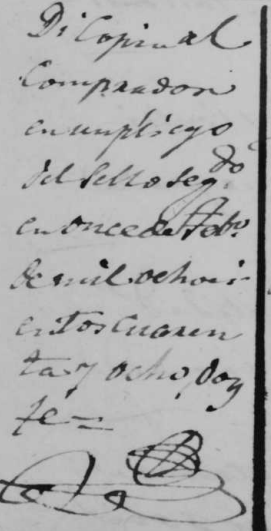 Di Copia al
Comprador
en un pliego
del Sello Segdo
en once de Febo
de mil ochoci
entos cuaren
ta y ocho, doy
fe =